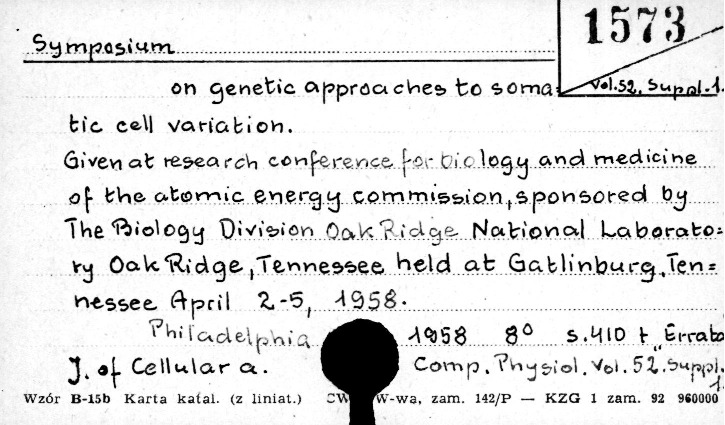 1573
Symposium
Vol.52, Suppl.1.
on genetic approaches to soma=
tic cell variation.
Given at research conference for biology and medicine
of the atomic energy commission, sponsored by
The Biology Division Oak Ridge National Laborato=
ry Oak Ridge, Tennessee held at Gatlinburg, Ten=
nessee April 2-5, 1958.
Philadelphia 1958 8° s.410 + Errata
J. of Cellular a. Comp. Physiol. Vol. 52. Suppl.
1.
Wzór B-15b Karta katal. (z liniat.) CW W-wa, zam. 142/P — KZG 1 zam. 92 960000